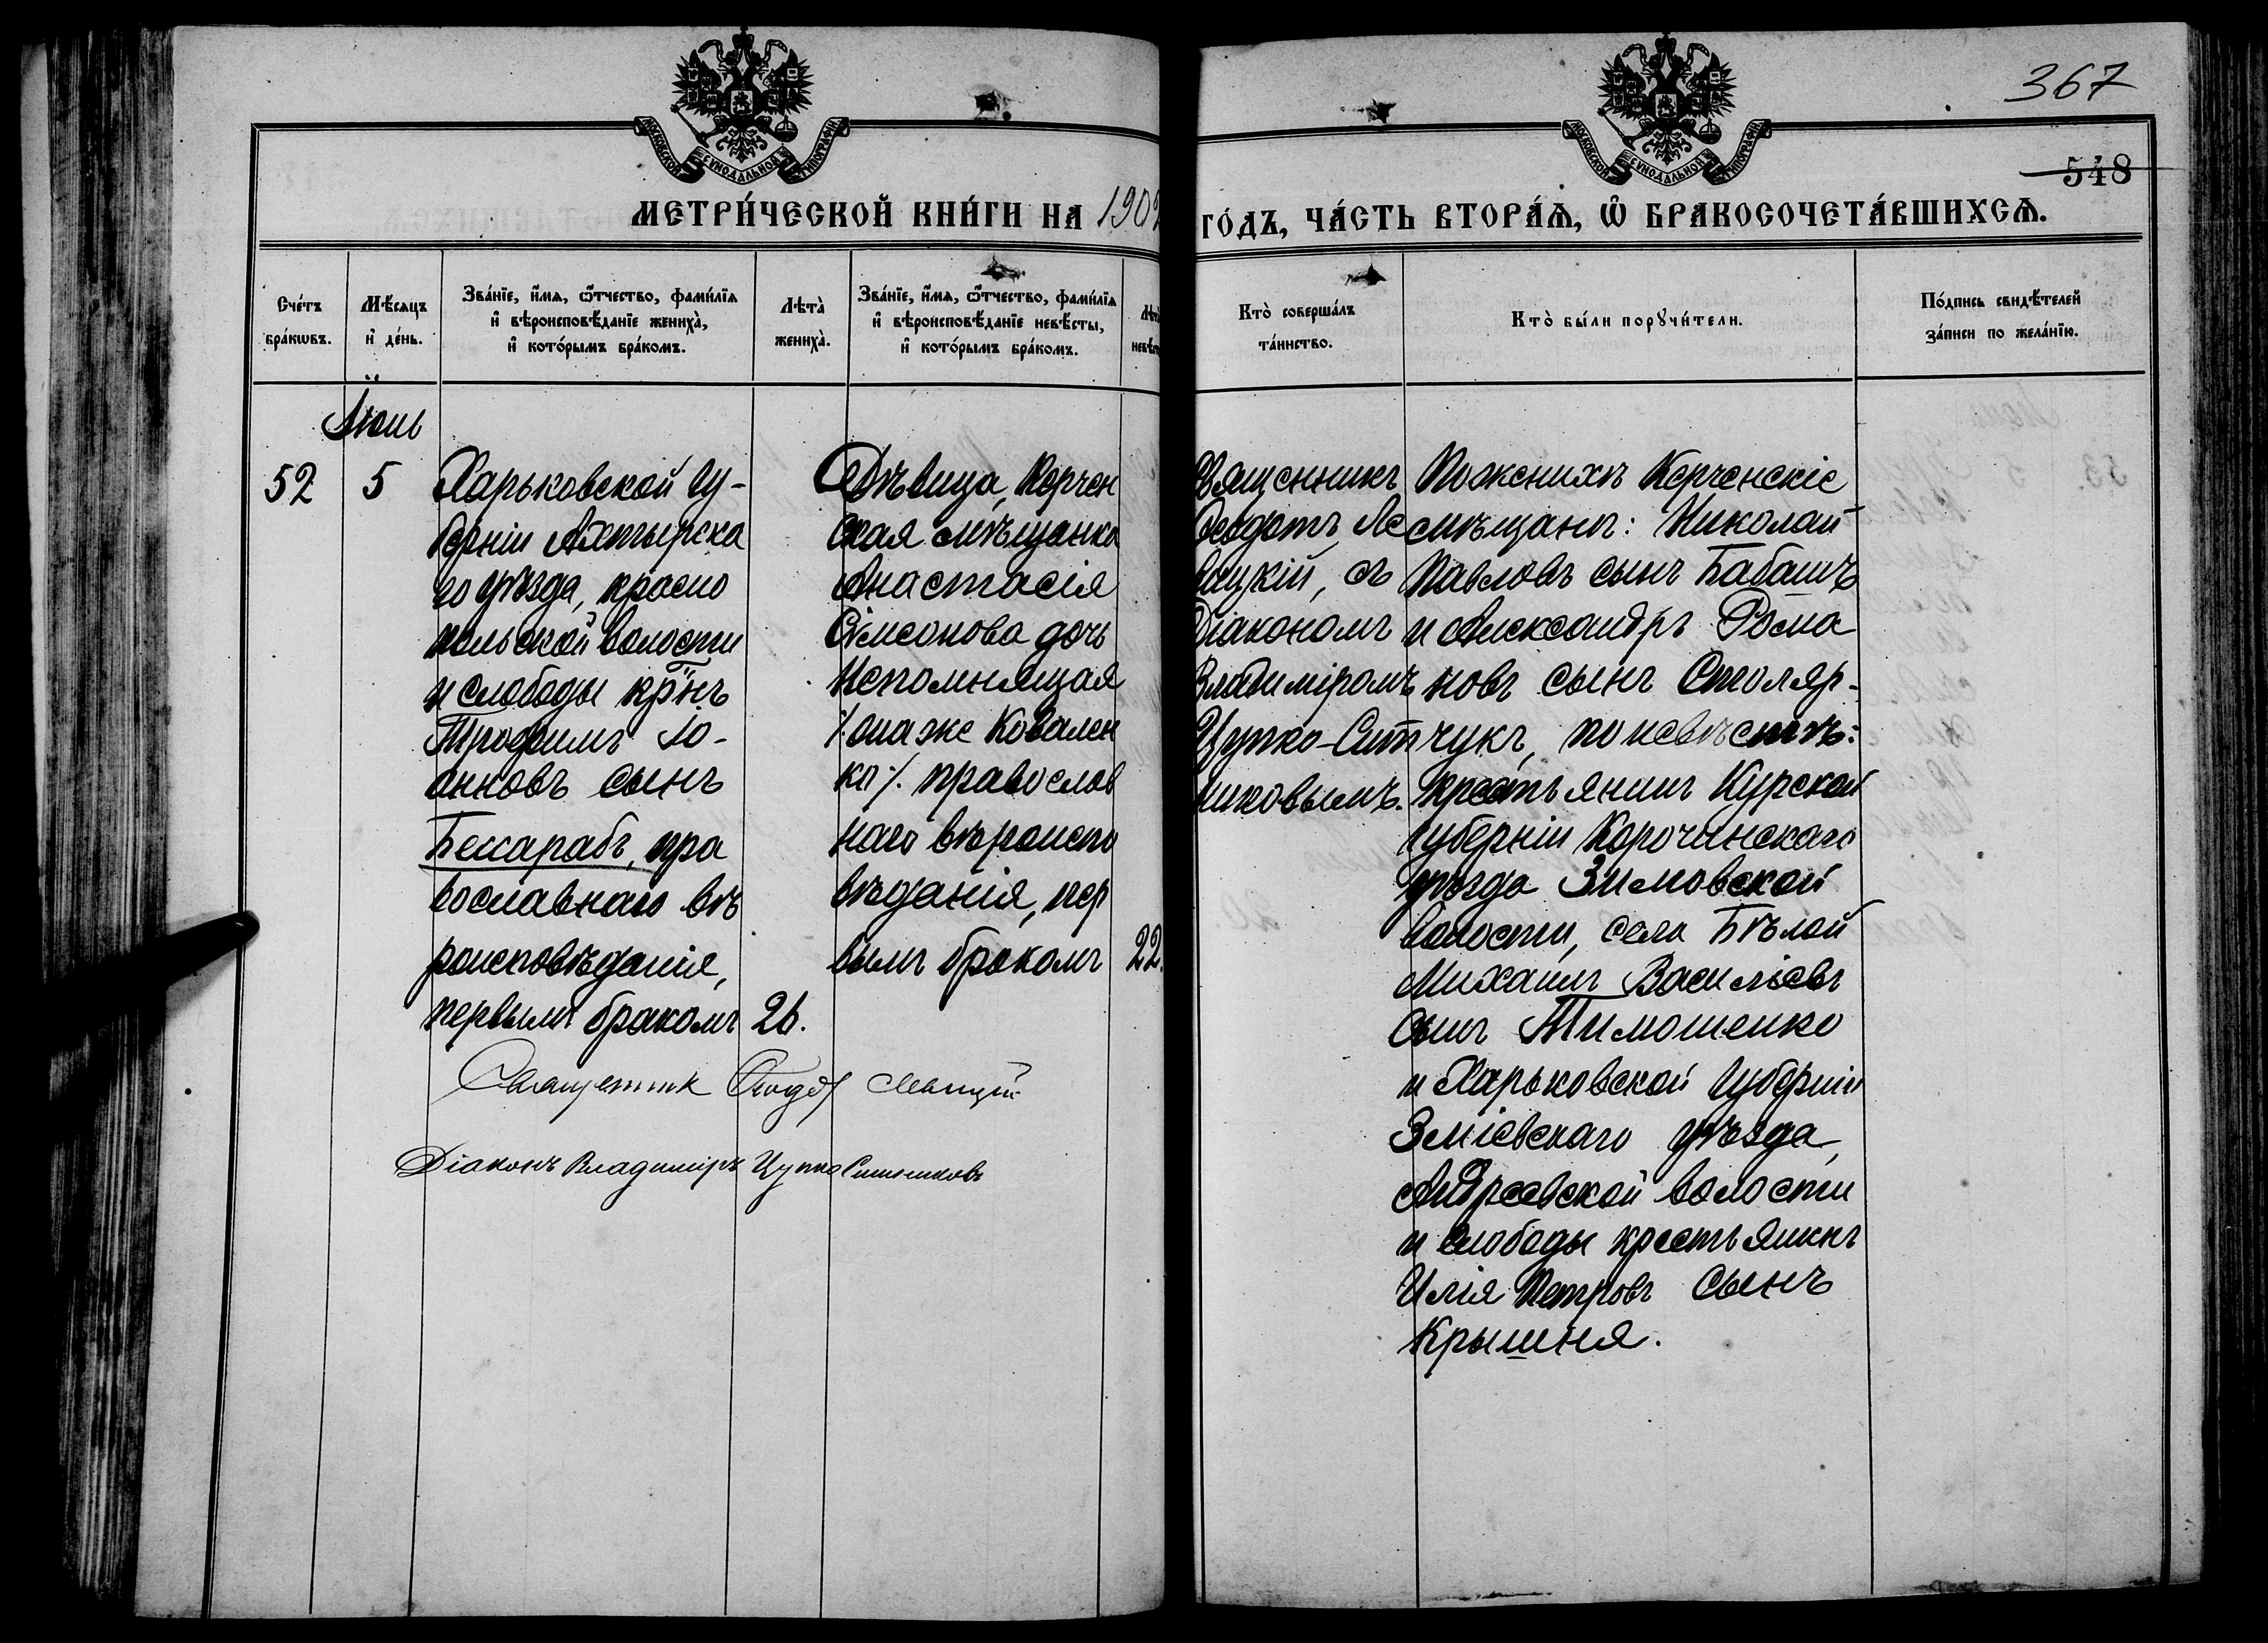 367
548
МОСКОВСКОЙ СѴНОДАЛЬНОЙ ТИПОГРАФІИ
МОСКОВСКОЙ СѴНОДАЛЬНОЙ ТИПОГРАФІИ
МЕТРИ́ЧЕСКОЙ КНИ́ГИ НА 190
ГО́ДЪ, ЧА́СТЬ ВТОРА́Ѧ, Ѿ БРАКОСОЧЕТА́ВШИХСѦ.
Сче́тъ
бра́кѡвъ.
Мѣ́сяцъ
и҆ де́нь.
Зва́нїе, и҆́мѧ, ѻ҆́тчество, фами́лїѧ
и҆ вѣроисповѣ́данїе жениха̀,
и҆ кото́рымъ бра́комъ.
Лѣта̀
жениха̀.
Зва́нїе, и҆́мѧ, ѻ҆́тчество, фами́лїѧ
и҆ вѣроисповѣ́данїе невѣ́сты,
и҆ кото́рымъ бра́комъ.
Кто̀ соверша́лъ
та́инство.
Кто̀ бы́ли порꙋчи́тели.
По́дпись свидѣ́телей
за́писи по жела́нїю.
Іюнь
52
5
Харьковской гу-
берніи Ахтырска
го уѣзда, красно
польской волости
и слободы кр̃нъ
Трофимъ Іо-
анновъ сынъ
Бессарабъ, пра
вославнаго вѣ
роисповѣданія,
первымъ бракомъ
26.
Дѣвица, Керчен
ская мѣщанка
Анастасія
Симеонова дочь
Непомнящая
/. она же Ковален
ко /. православ
наго вѣроиспо
вѣданія, пер
вымъ бракомъ
22.
Священникъ
Ѳеодотъ Ле
вицкій, съ
Діакономъ
Владиміромъ
Цупко-Сит
никовымъ.
По женихѣ Керченскіе
мѣщане: Николай
Павловъ сынъ Бабашъ
и Александръ Рома
новъ сынъ Столяр-
чукъ, по невѣстѣ:
крестьянинъ Курской
губерніи Корочинскаго
уѣзда Зимовской
волости, села Бѣлой
Михаилъ Василіевъ
сынъ Тимошенко
и Харьковской губерніи
Зміевскаго уѣзда,
Андреевской волости
и слободы крестьянинъ
Илія Петровъ сынъ
Крышня.
Священник Ѳеодот Левицкій
Діаконъ Владиміръ Цупко Ситниковъ